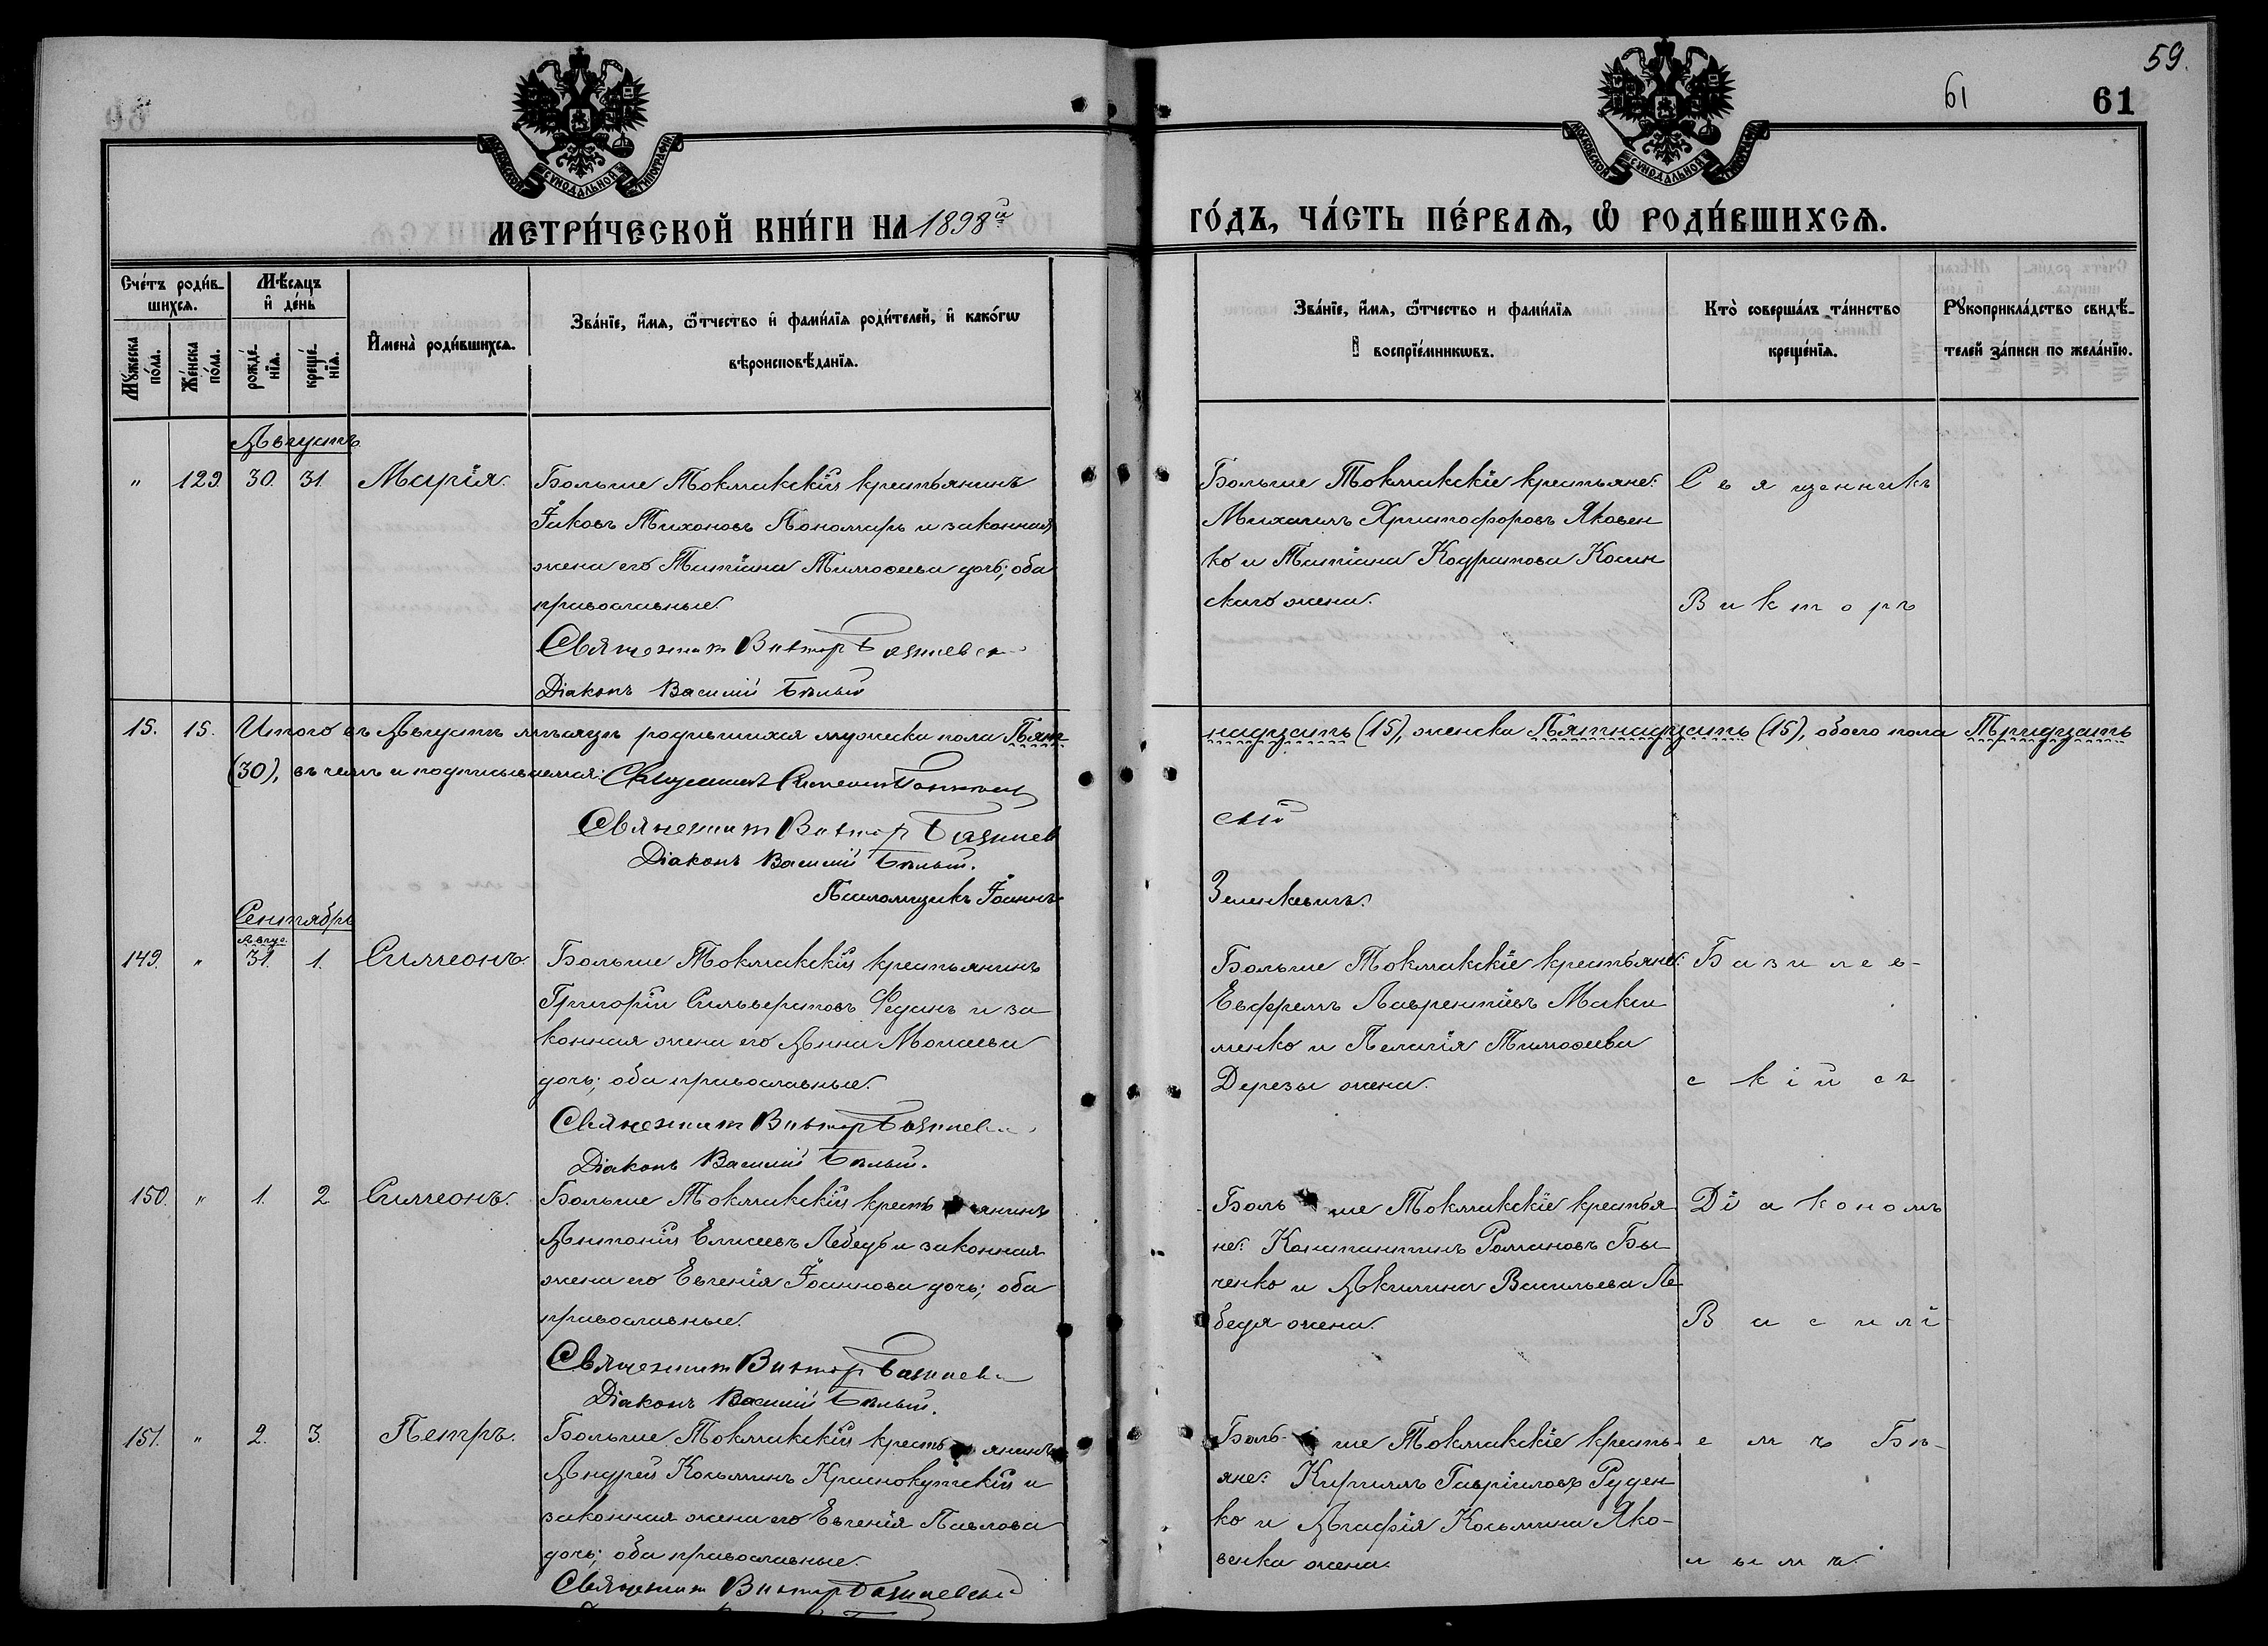 59.
61
61
МОСКОВСКОЙ СѴНОДАЛЬНОЙ ТИПОГРАФІИ
МОСКОВСКОЙ СѴНОДАЛЬНОЙ ТИПОГРАФІИ
МЕТРИ́ЧЕСКОЙ КНИ́ГИ НА 1898й
ГО́ДЪ, ЧА́СТЬ ПЕ́РВАѦ, Ѡ҆ РОДИ́ВШИХСѦ.
Сче́тъ роди́в-
шихсѧ.
Мѣ́сяцъ
и҆ де́нь
Мꙋ́жеска по́ла.
Же́нска по́ла.
рожде́-
нїѧ.
креще́-
нїѧ.
И҆мена̀ роди́вшихсѧ.
Зва́нїе, и҆́мѧ, ѻ҆́тчество и҆ фами́лїѧ роди́телей, и҆ како́гѡ
вѣроисповѣ́данїѧ.
Зва́нїе, и҆́мѧ, ѻ҆́тчество и фами́лїѧ
воспрїе́мникѡвъ.
Кто̀ соверша́лъ та́инство
креще́нїѧ.
Рꙋкоприкла́дство свидѣ́-
телей за́писи по жела́нїю.
Августъ.
" 129. 30. 31. Марія. Больше Токмакскій крестьянинъ
Іаковъ Тихоновъ Пономарь и законная
жена его Татіана Тимоѳеева дочь; оба
православные.
Священник Виктор Базилевск
Діаконъ Василій Бѣлый
Больше Токмакскіе крестьяне:
Михаилъ Христофоровъ Яковен
ко и Татіана Кодратова Косин
скаго жена.
Священникъ
Викторъ
15. 15. Итого въ Августѣ мѣсяцѣ родившихся мужеска пола Пят
надцать (15), женска Пятнадцать (15), обоего пола Тридцать
(30), въ чемъ и подписываемся: Священникъ Симеонъ
Священник Виктор Базилев
скій
Діаконъ Василій Бѣлый.
Псаломщикъ Іоаннъ
Зелинкевичъ.
Сентябрь
Авгус.
149. " 31. 1. Симеонъ. Больше Токмакскій крестьянинъ
Григорій Сильверстовъ Федянъ и за
конная жена его Анна Моисеева
дочь; оба православные.
Священник Виктор Базилев
Діаконъ Василій Бѣлый.
Больше Токмакскіе крестьяне:
Евфремъ Лаврентіевъ Макси
менко и Пелагія Тимоѳеева
Дерезы жена.
Базилев-
скій съ
150. " 1. 2 Симеонъ. Больше Токмакскій кресть янинъ
Антоній Елисеевъ Лебедь и законная
жена его Евгенія Іоаннова дочь; оба
православные.
Священник Виктор Базилев
Діаконъ Василій Бѣлый.
Боль ше Токмакскіе крестья
не: Константинъ Романовъ Бы
ченко и Акилина Васильева Ле
бедя жена.
Діакономъ
Василі
151. " 2. 3. Петръ. Больше Токмакскій кресть янинъ
Андрей Косьминъ Краснокутскій и
законная жена его Евгенія Павлова
дочь; оба православные.
Священник Виктор Базилевский
Боль- ше Токмакскіе кресть-
яне: Кириллъ Гавріиловъ Руден
ко и Агафія Косьмина Яко-
венка жена.
емъ Бѣ-
лымъ.